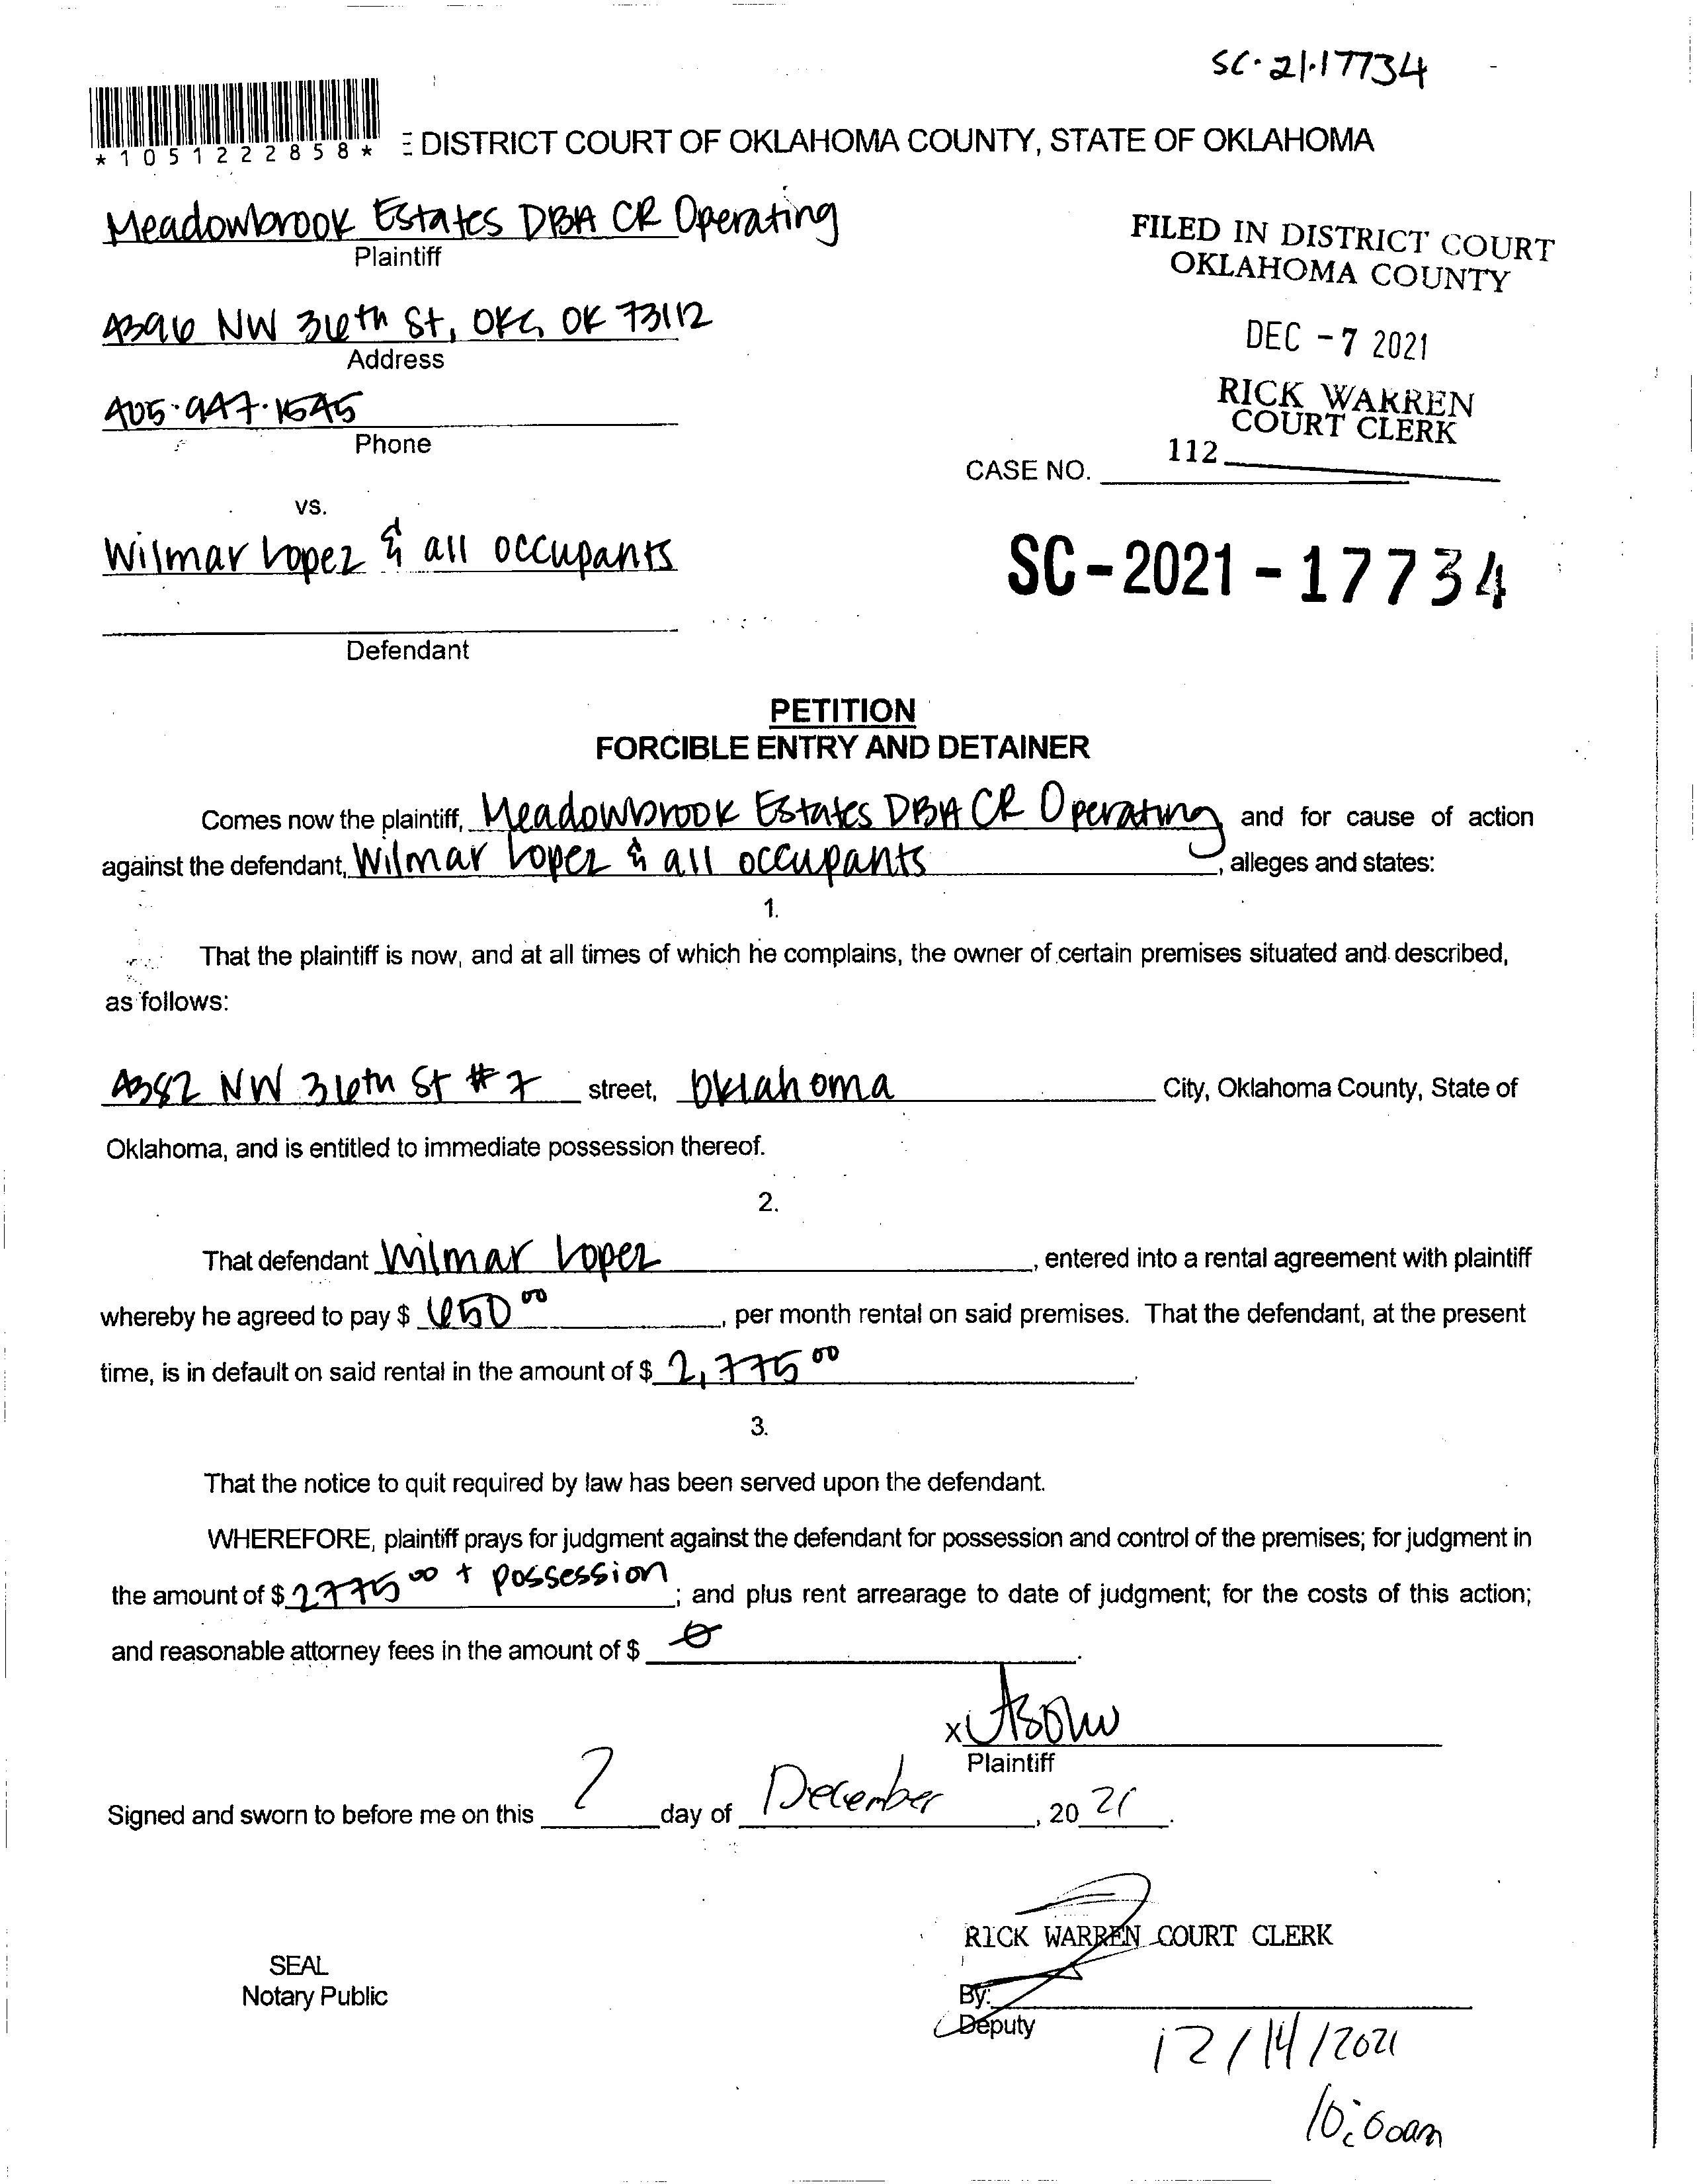 SC-21-17734
*1051222858* E DISTRICT COURT OF OKLAHOMA COUNTY, STATE OF OKLAHOMA
Meadowbrook Estates DBA CR Operating
Plaintiff
FILED IN DISTRICT COURT
OKLAHOMA COUNTY
4396 NW 36th St, OKC, OK 73112
Address
DEC -7 2021
405-947-1545
Phone
RICK WARREN
COURT CLERK
CASE NO. 112
vs.
Wilmar Lopez & all occupants
SC-2021-17734
Defendant
PETITION
FORCIBLE ENTRY AND DETAINER
Comes now the plaintiff, Meadowbrook Estates DBA CR Operating and for cause of action
against the defendant, Wilmar Lopez & all occupants, alleges and states:
1.
That the plaintiff is now, and at all times of which he complains, the owner of certain premises situated and described,
as follows:
4382 NW 36th St #7 street, Oklahoma City, Oklahoma County, State of
Oklahoma, and is entitled to immediate possession thereof.
2.
That defendant Wilmar Lopez, entered into a rental agreement with plaintiff
whereby he agreed to pay $ 650 00, per month rental on said premises. That the defendant, at the present
time, is in default on said rental in the amount of $ 2,775 00.
3.
That the notice to quit required by law has been served upon the defendant.
WHEREFORE, plaintiff prays for judgment against the defendant for possession and control of the premises; for judgment in
the amount of $ 2775 00 + possession; and plus rent arrearage to date of judgment; for the costs of this action;
and reasonable attorney fees in the amount of $ 0.
X
Plaintiff
Signed and sworn to before me on this 7 day of December, 20 21.
RICK WARREN COURT CLERK
SEAL
Notary Public
By:
Deputy
12/14/2021
10:00am